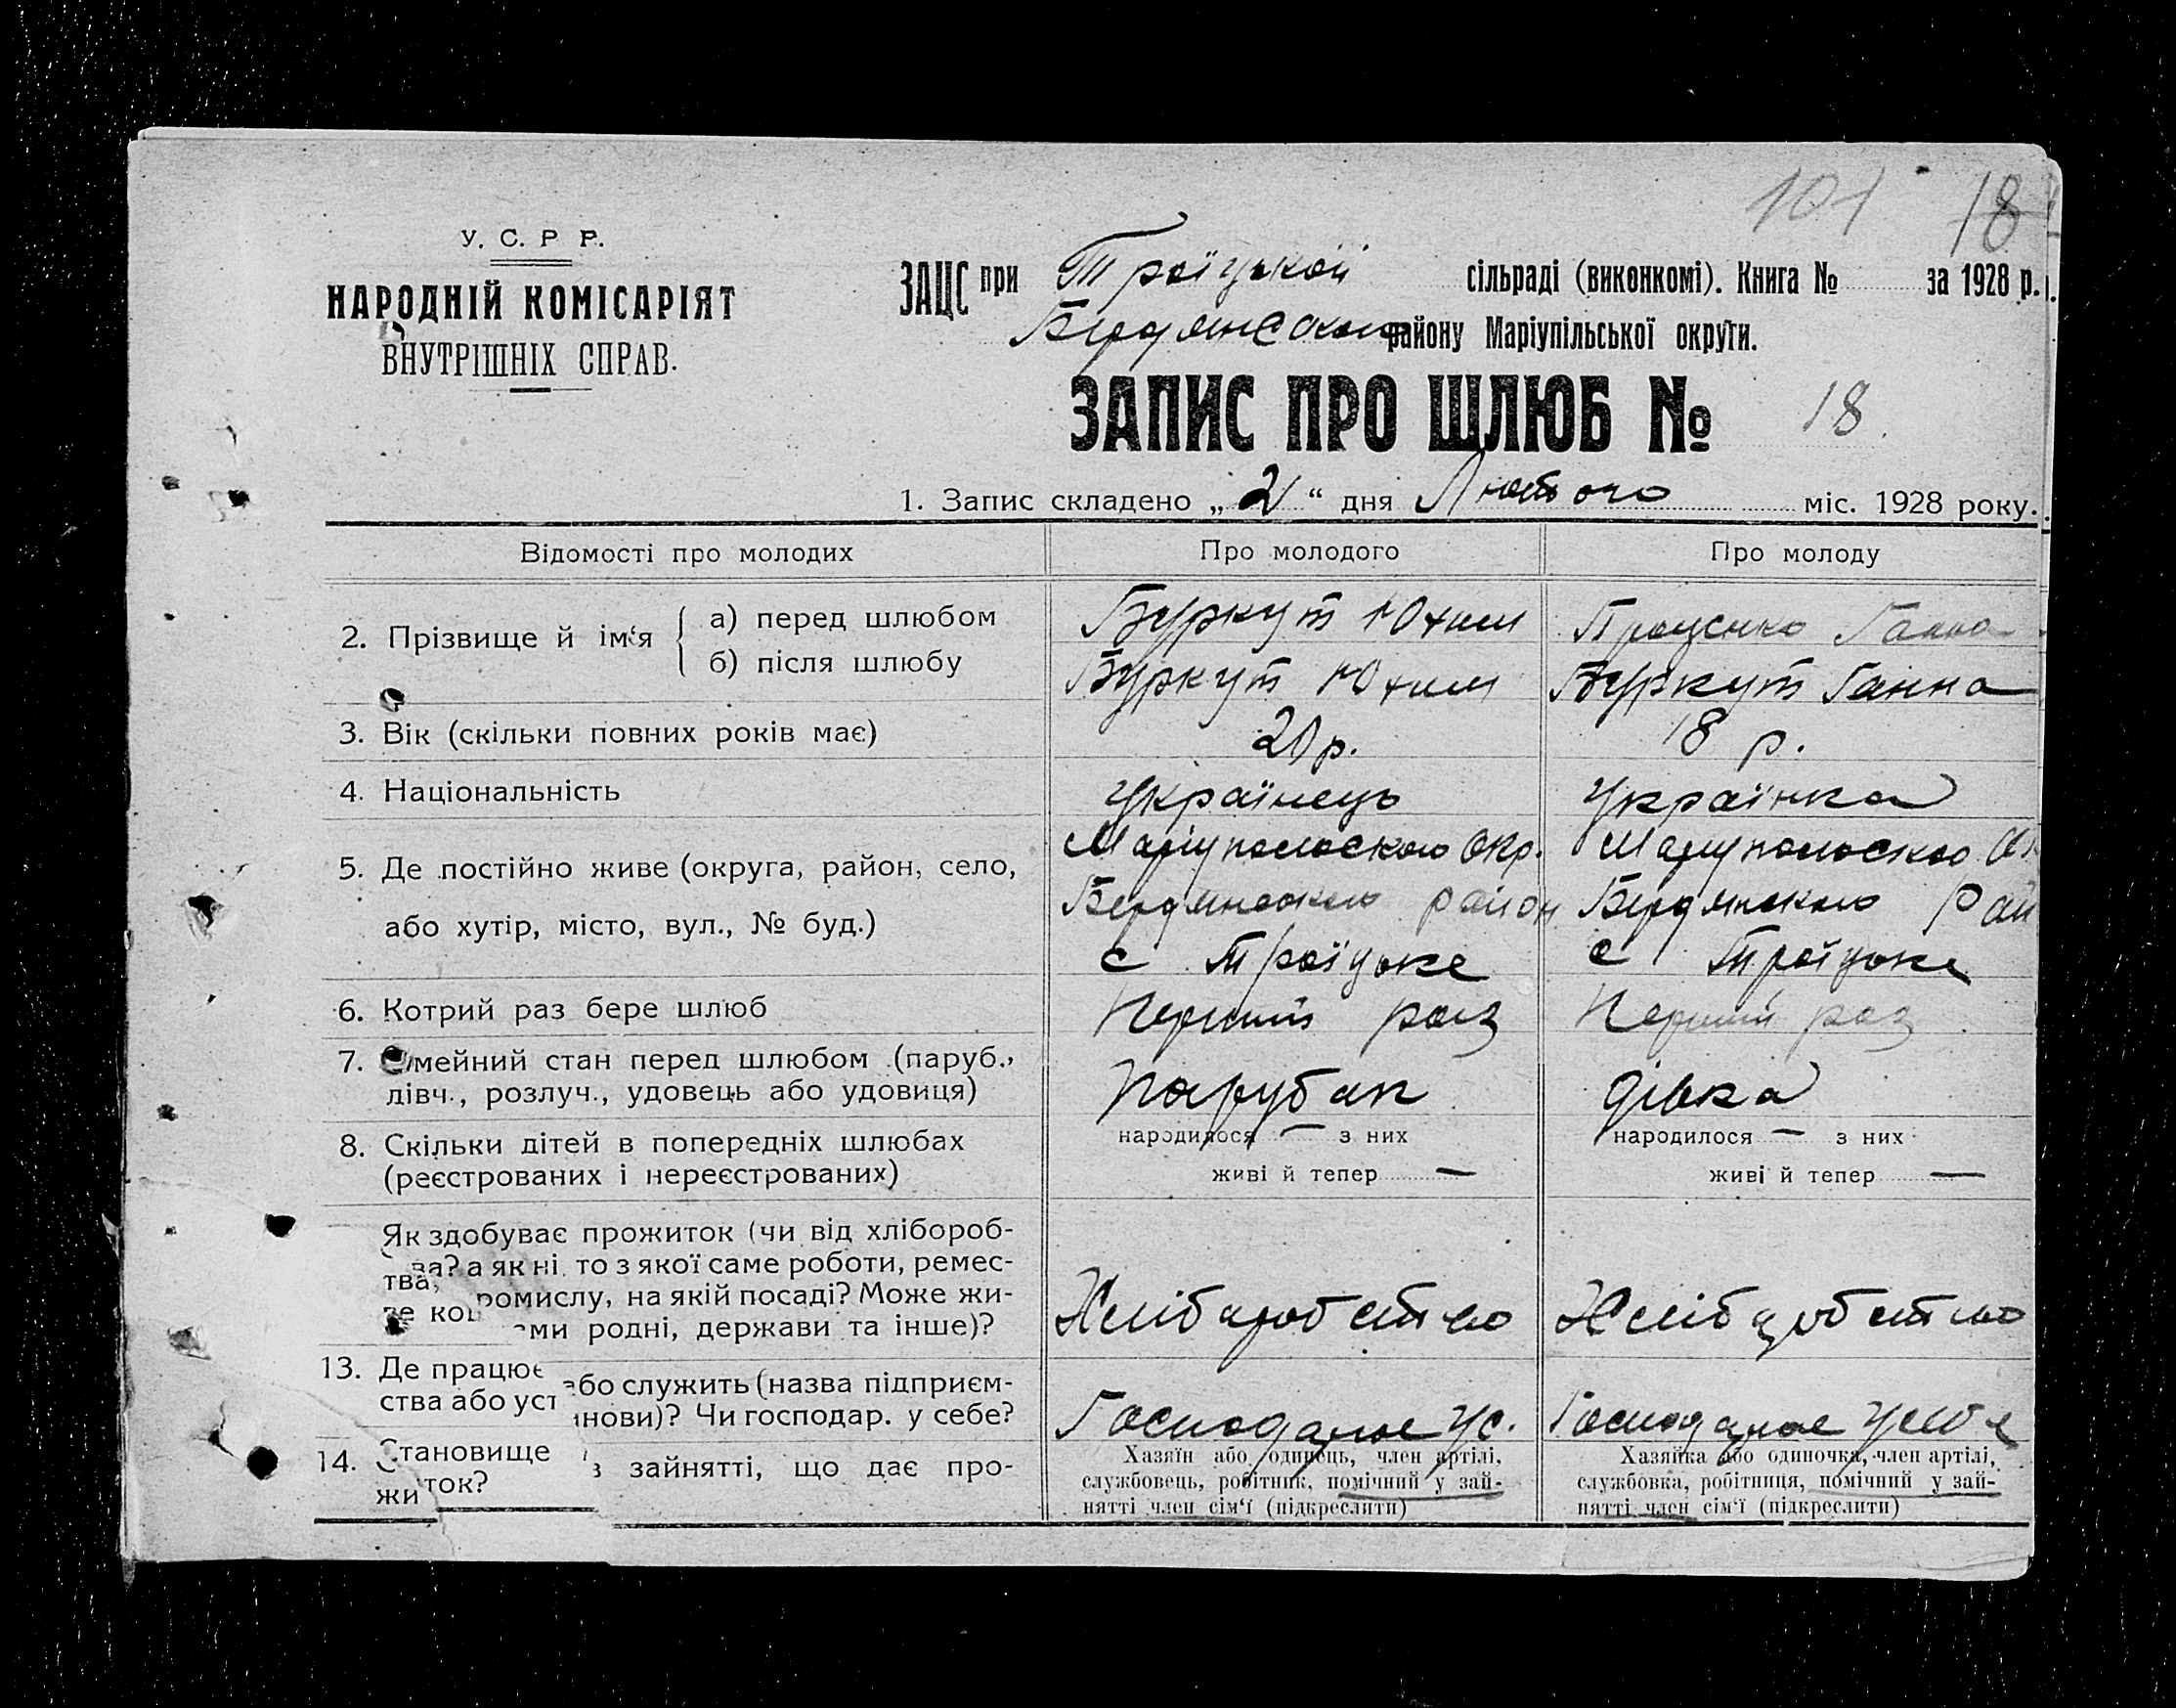 101 18
У. С. Р Р.
НАРОДНІЙ КОМІСАРІЯТ
ВНУТРІШНІХ СПРАВ.
ЗАЦС при Троїцькой сільраді (виконкомі). Книга № за 1928 р.
Бердянською району Маріупільської округи.
ЗАПИС ПРО ШЛЮБ № 18
1. Запис складено „21“ дня Лютого міс. 1928 року.
Відомості про молодих
Про молодого
Про молоду
2. Прізвище й ім‘я
а) перед шлюбом
Буркут Юхим
Проценко Ганна
б) після шлюбу
Буркут Юхим
Буркут Ганна
3. Вік (скільки повних років має)
20 р.
18 р.
4. Національність
Українець
Українка
5. Де постійно живе (округа, район, село,
або хутір, місто, вул., № буд.)
Маріупольского Окр.
Бердянського район
с Троїцьке
Бердянского Рай
с Троїцьке
6. Котрий раз бере шлюб
Перший раз
Перший раз
7. мейний стан перед шлюбом (паруб.,
дівч., розлуч., удовець або удовиця)
Парубак
дівка
8. Скільки дітей в попередніх шлюбах
(реєстрованих і нереєстрованих)
народилося — з них
живі й тепер —
народилося — з них
живі й тепер —
Як здобуває прожиток (чи від хлібороб-
тва, ва? а як ні то з якої саме роботи, ремес-
ромислу, на якій посаді? Може жи-
ве кош ами родні, держави та інше)?
Хлібаробство
Хлібаробство
13. Де працює або служить (назва підприєм-
ства або уст анови)? Чи господар. у себе?
Господарює ус.
Господарює усебе
14. Становище в зайнятті, що дає про-
житок?
Хазяїн або одинець, член артілі,
службовець, робітник, помічний у зай-
нятті член сім‘ї (підкреслити)
Хазяйка або одиночка, член артілі,
службовка, робітниця, помічний у зай-
нятті член сім‘ї (підкреслити)